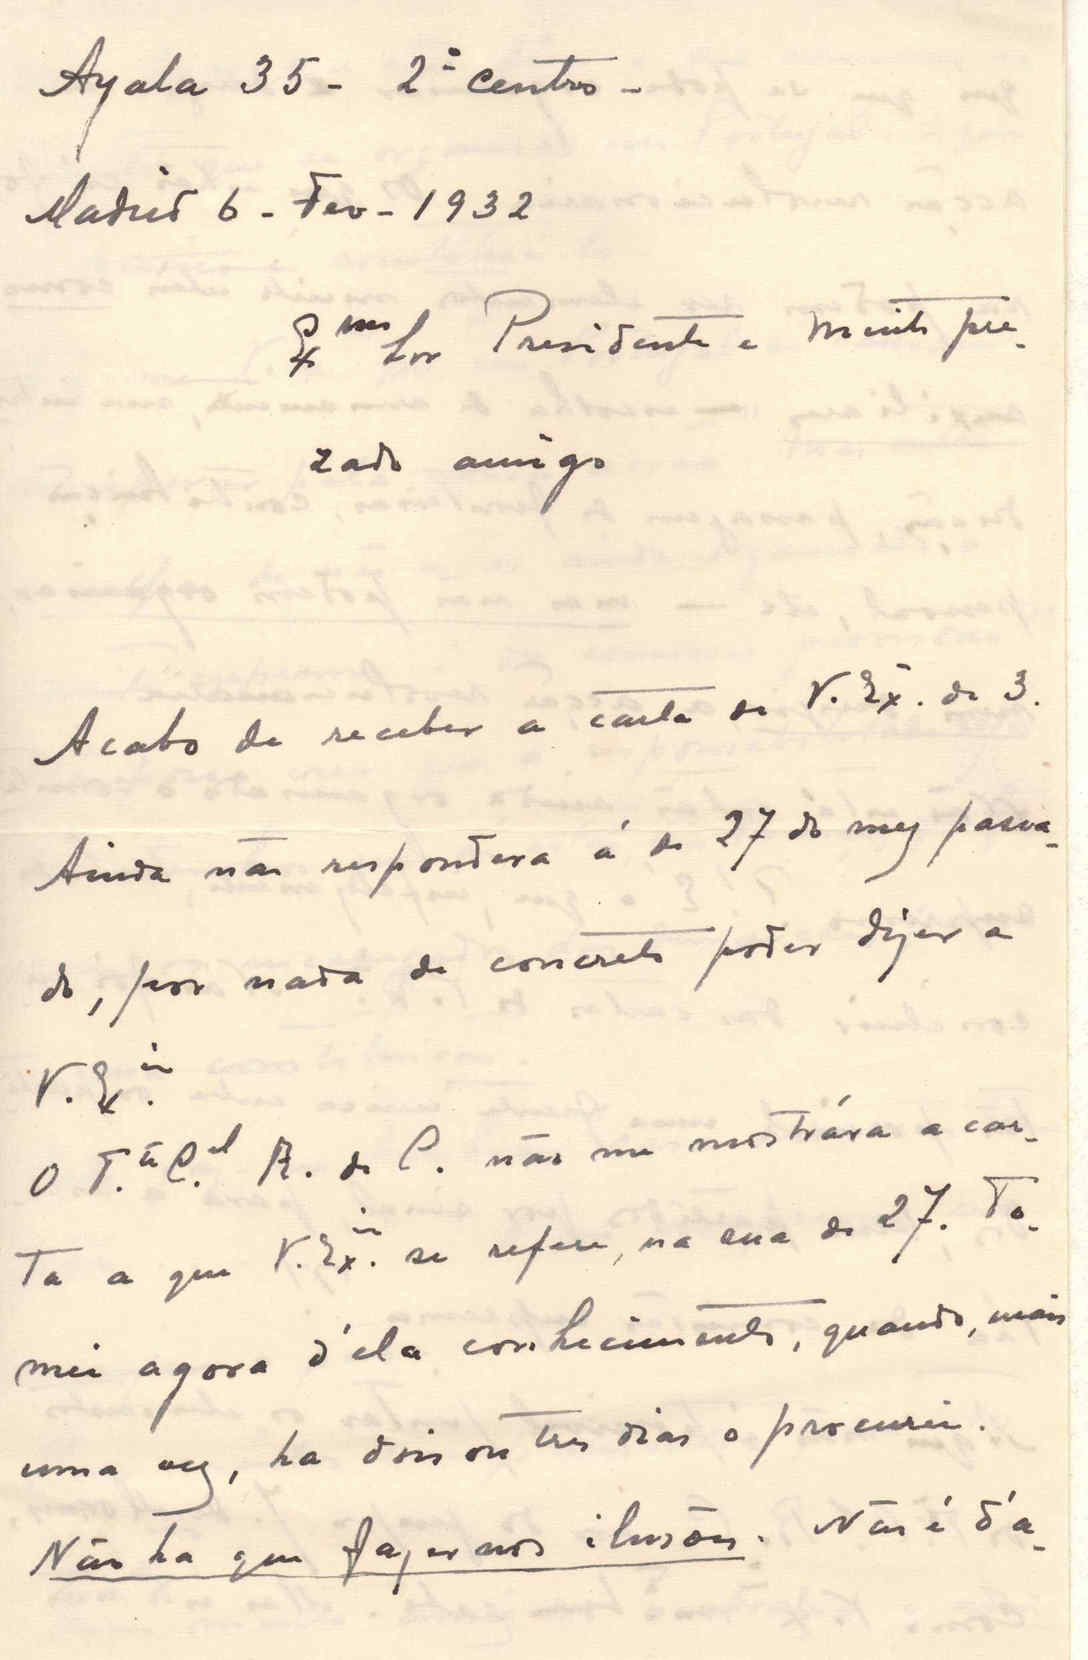 Ayala 35 - 2º centro -
Madrid 6 - Fev - 1932
Exmo Snr Presidente e muito pre-
zado amigo
Acabo de receber a carta de V. Ex.ª de 3.
Ainda não respondera á de 27 do mez passa-
do, por nada de concreto poder dizer a
V. Ex.ª
O T.te C.el R. de C. não me mostrára a car-
ta a que V. Ex.ª se refere, na sua de 27. To-
mei agora d'ela conhecimento, quando, mais
uma vez, ha dois ou tres dias o procurei.
Não ha que fazer-nos ilusões. Não é d'a-